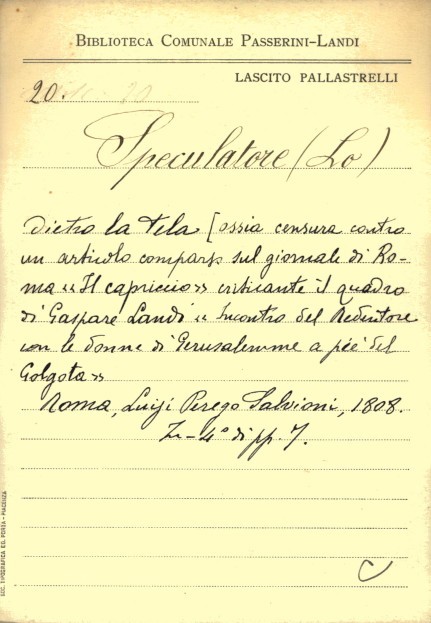 BIBLIOTECA COMUNALE PASSERINI-LANDI
LASCITO PALLASTRELLI
20.
Speculatore (Lo)
Dietro la Tela [ossia censura contro
un articolo comparso sul giornale di Ro-
ma «Il capriccio» criticante il quadro
di Gaspare Landi « Incontro del Redentore
con le donne di Gerusalemme a piè del
Golgota»
Roma, Luigi Perego Salvioni, 1808.
In-4° di pp. 7.
SOC. TIPOGRAFICA ED. PORTA - PIACENZA